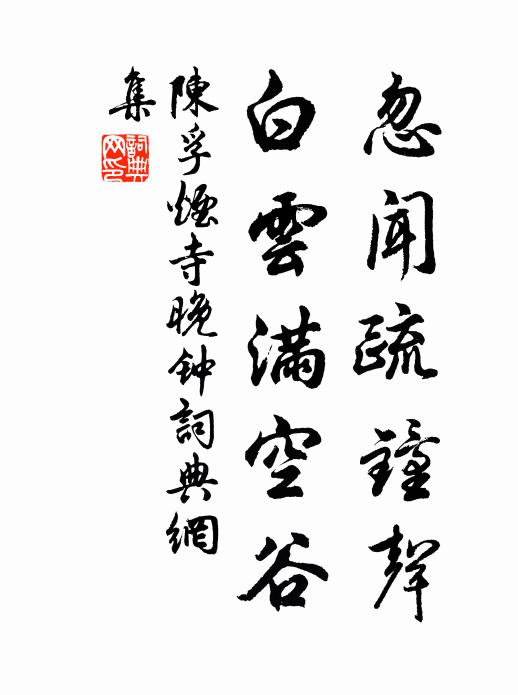 忽聞疏鐘聲
白雲滿空谷
陳孚煙寺晚钟詞典網
集
詞典網印